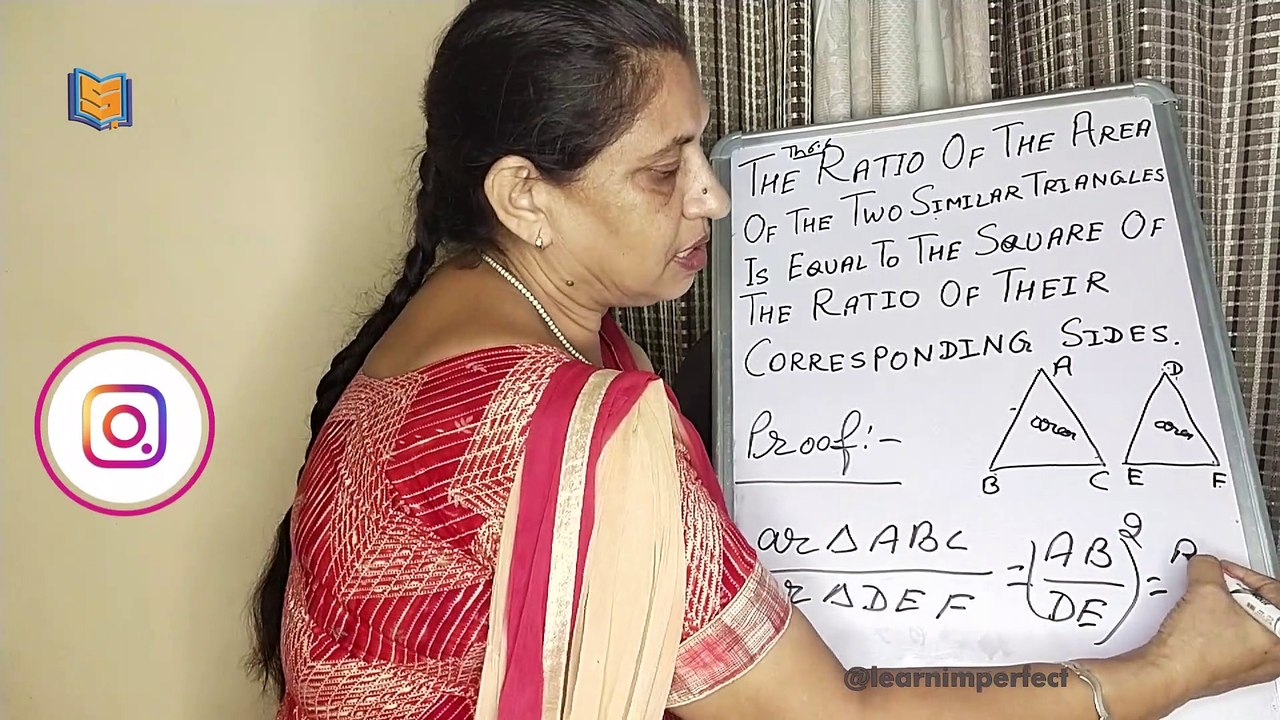 THE RATIO OF THE AREA
OF THE TWO SIMILAR TRIANGLES
IS EQUAL TO THE SQUARE OF
THE RATIO OF THEIR
CORRESPONDING SIDES.
A D
Proof:-
B C E F
ar Δ ABC
= (AB/DE)² =
Δ DEF
@learnimperfect